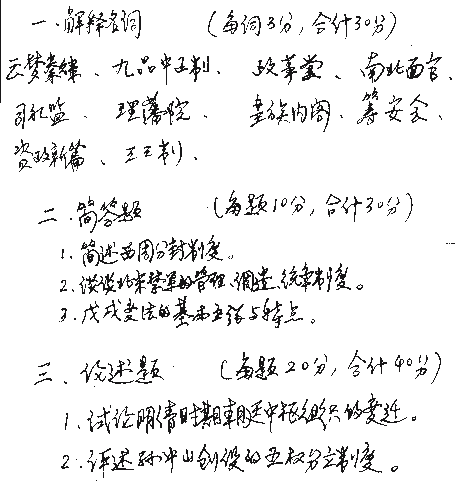 一、解释名词 (每词3分,合计30分)
云梦秦律、九品中正制、政事堂、南北面官、
司礼监、理藩院、皇族内阁、筹安会、
资政新篇、三三制、
二、简答题 (每题10分,合计30分)
1.简述西周分封制度。
2.谈谈北宋禁军的管理、调遣、统率制度。
3.戊戌变法的基本主张与特点。
三、论述题 (每题20分,合计40分)
1.试论明清时期朝廷中枢组织的变迁。
2.评述孙中山创设的五权分立制度。